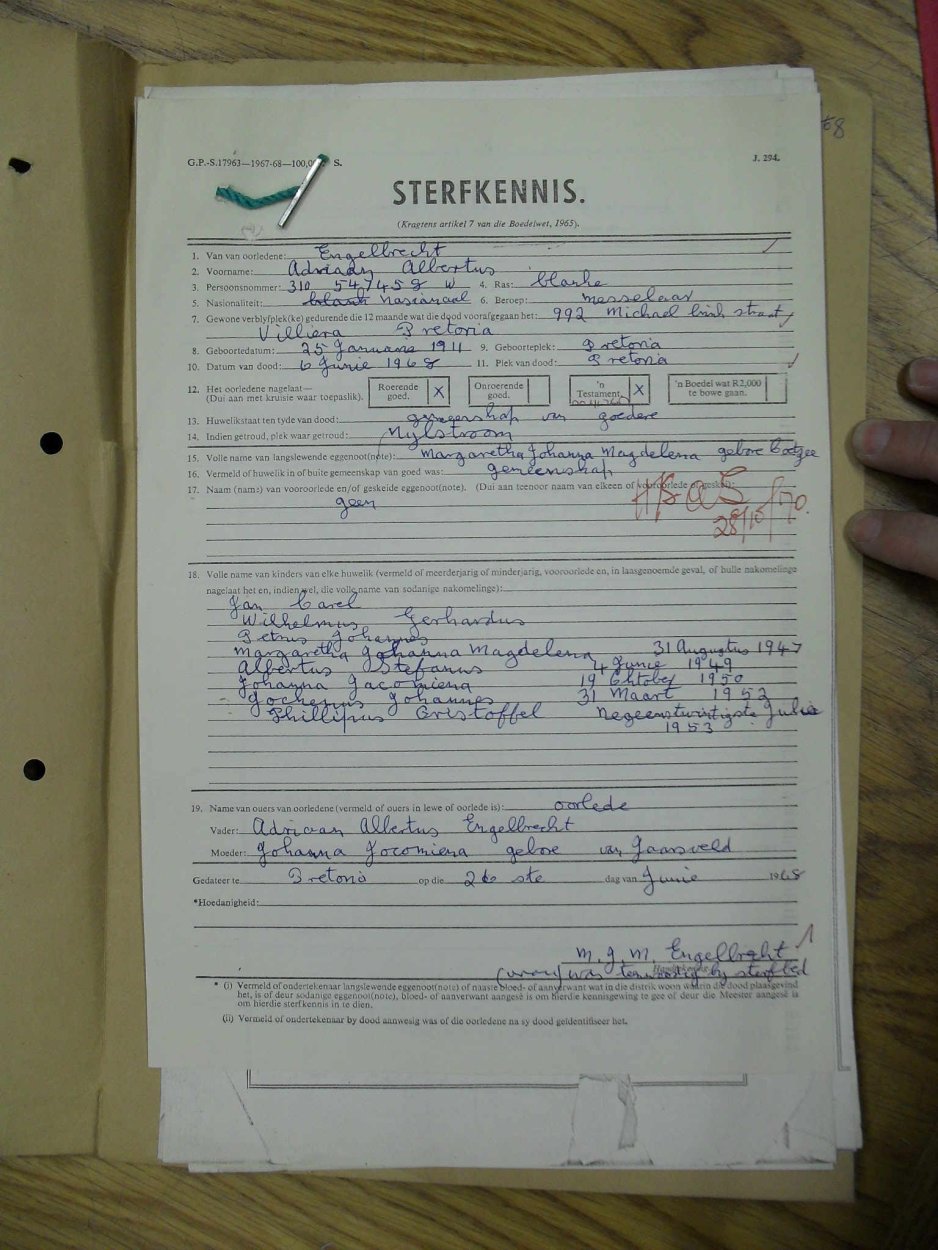 68
G.P.-S.17963—1967-68—100,0 S. J. 294.
STERFKENNIS.
(Kragtens artikel 7 van die Boedelwet, 1965).
1. Van van oorledene: Engelbrecht
2. Voorname: Adriaan Albertus
3. Persoonsnommer: 310 547458 W 4. Ras: blanke
5. Nasionaliteit: blank Nasionaal 6. Beroep: messelaar
7. Gewone verblyfplek(ke) gedurende die 12 maande wat die dood voorafgegaan het: 992 Michael brink straat
Villiera Pretoria
8. Geboortedatum: 25 Januarie 1911 9. Geboorteplek: Pretoria
10. Datum van dood: 6 Junie 1968 11. Plek van dood: Pretoria
12. Het oorledene nagelaat— (Dui aan met kruisie waar toepaslik). Roerende goed. X Onroerende goed. 'n Testament. X 'n Boedel wat R2,000 te bowe gaan.
13. Huwelikstaat ten tyde van dood: gemeenskap van goedere
14. Indien getroud, plek waar getroud: Nylstroom
15. Volle name van langslewende eggenoot(note): Margaretha Johanna Magdelena gebore Coetzee
16. Vermeld of huwelik in of buite gemeenskap van goed was: gemeenskap
17. Naam (name) van vooroorlede en/of geskeide eggenoot(note). (Dui aan teenoor naam van elkeen of vooroorlede of geskei):
geen
28/10/70.
18. Volle name van kinders van elke huwelik (vermeld of meerderjarig of minderjarig, vooroorlede en, in laasgenoemde geval, of hulle nakomelinge
nagelaat het en, indien wel, die volle name van sodanige nakomelinge):
Jan Carel
Wilhelmus Gerhardus
Petrus Johannes
Margaretha Johanna Magdelena 31 Augustus 1947
Albertus Stefanus 4 Junie 1949
Johanna Jacomiena 19 Oktober 1950
Jochemus Johannes 31 Maart 1952
Phillipus Cristoffel Negeentwintigste Julie
1953
19. Name van ouers van oorledene (vermeld of ouers in lewe of oorlede is): oorlede
Vader: Adriaan Albertus Engelbrecht
Moeder: Johanna Jocomiena gebore van Jaarsveld
Gedateer te Pretoria op die 26 ste dag van Junie 1968
*Hoedanigheid:
M. J. M. Engelbrecht
(vrou) was teenwoordig by sterfbed
* (i) Vermeld of ondertekenaar langslewende eggenoot(note) of naaste bloed- of aanverwant wat in die distrik woon waarin die dood plaasgevind
het, is of deur sodanige eggenoot(note), bloed- of aanverwant aangesê is om hierdie kennisgewing te gee of deur die Meester aangesê is
om hierdie sterfkennis in te dien.
(ii) Vermeld of ondertekenaar by dood aanwesig was of die oorledene na sy dood geïdentifiseer het.